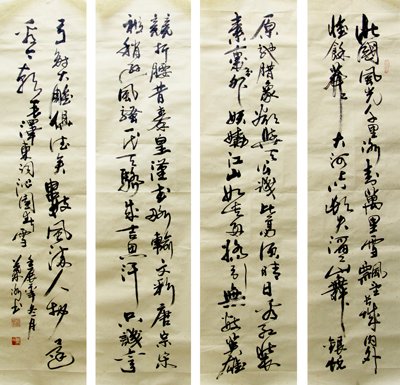 北國風光千里冰封萬里雪飄望長城內外
惟餘莽莽大河上下頓失滔滔山舞銀蛇
原馳腊象欲與天公試比高須晴日看紅裝
素裹分外妖嬈江山如此多嬌引無數英雄
競折腰昔秦皇漢武略輸文采唐宗宋
祖稍遜風騷一代天驕成吉思汗只識彎
弓射大雕俱往矣數風流人物還
看今朝毛澤東詞沁園春雪